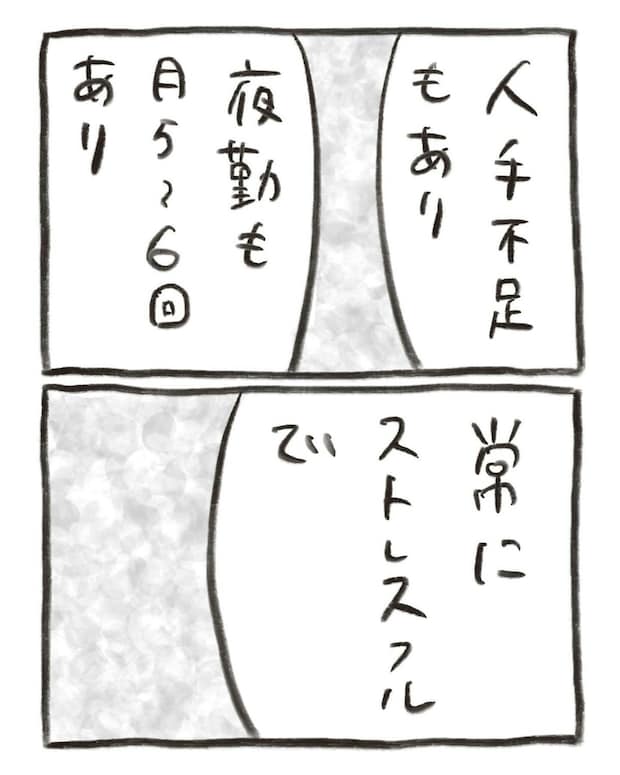 人手不足
もあり
夜勤も
月5〜6回
あり
常に
ストレスフル
で